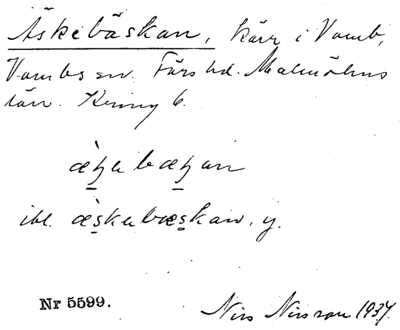 Äskebäskan, kärr i Vomb,
Vombs sn. Färs hd. Malmöhus
län. Kring 6.
ibl. æskebæskan, y.
Nr 5599.
Nils Nilsson 1937.